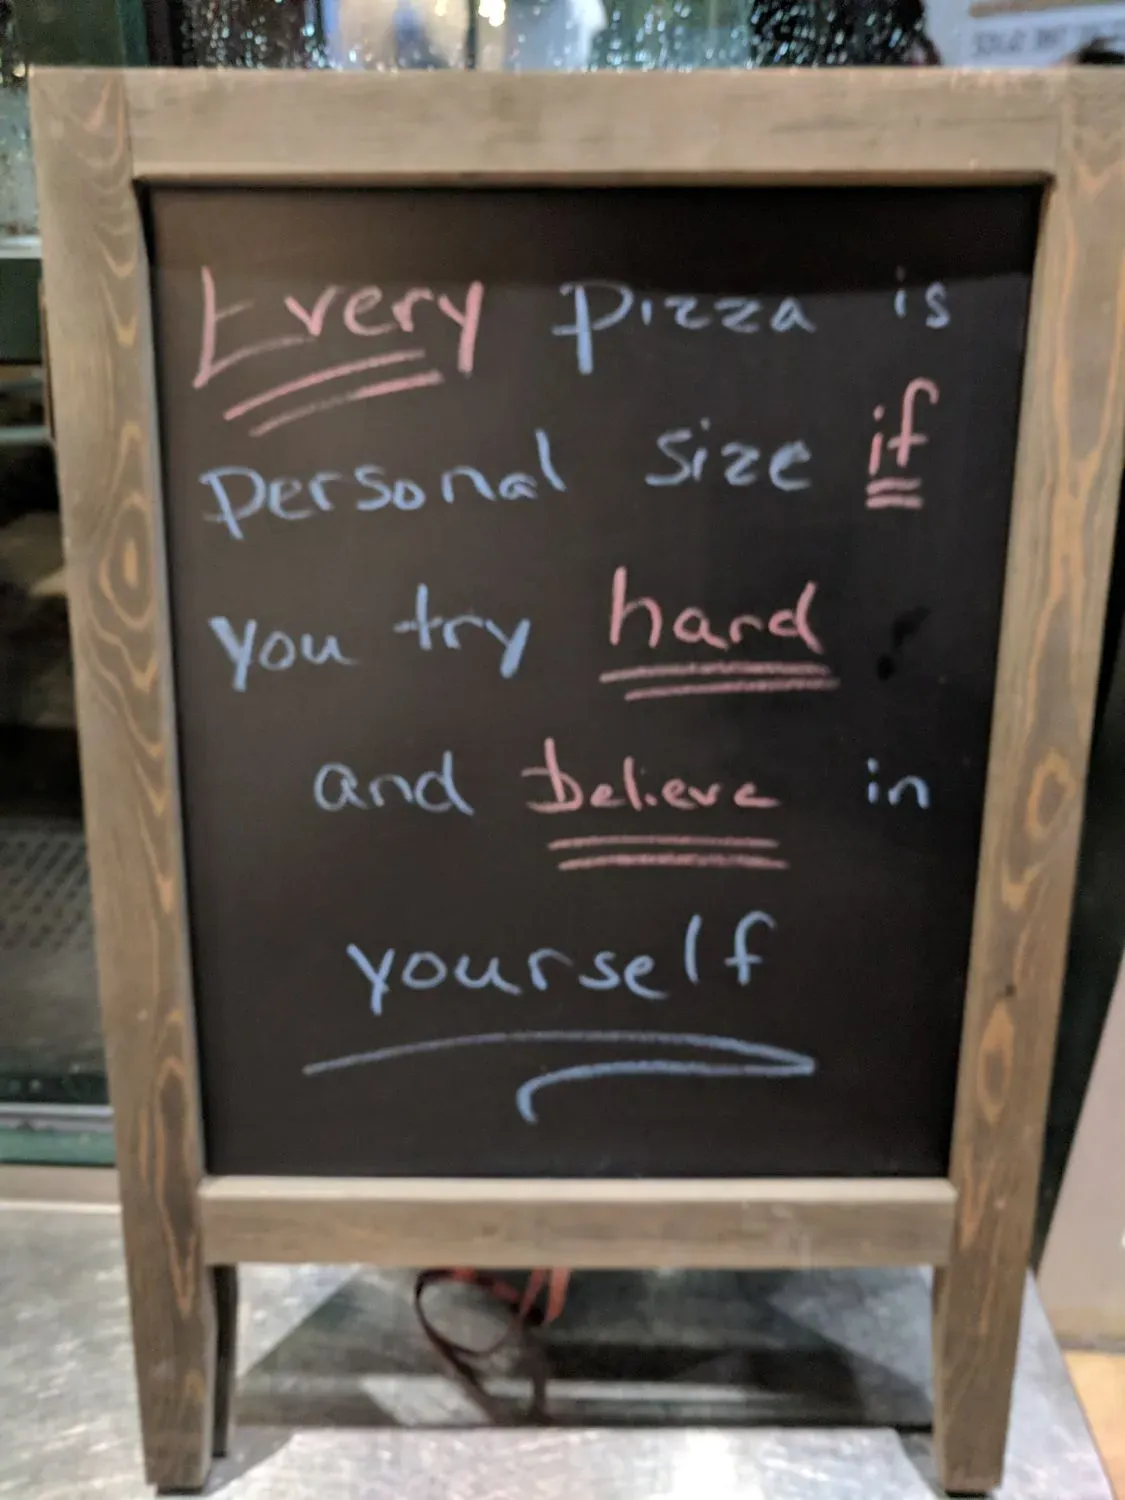 Every pizza is
personal size if
you try hard
and believe in
yourself